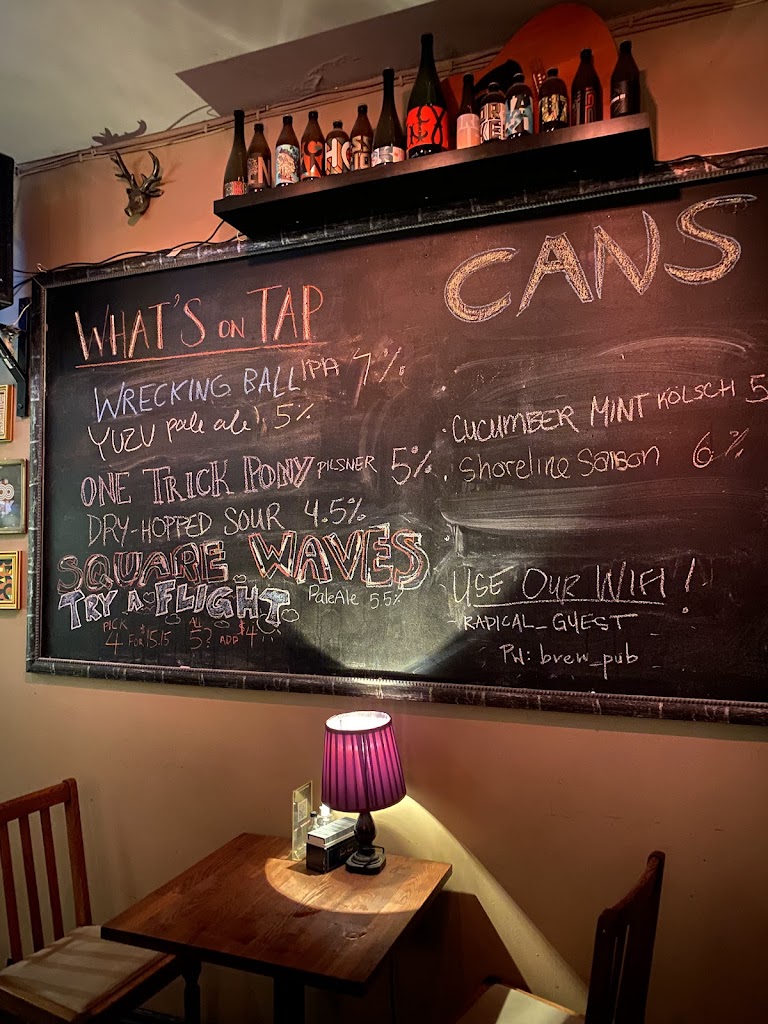 WHAT'S ON TAP
WRECKING BALL IPA 7%
YUZU pale ale 5%
ONE TRICK PONY PILSNER 5%
DRY-HOPPED SOUR 4.5%
SQUARE WAVES
Pale Ale 5.5%
TRY A FLIGHT
PICK 4 FOR $15.15 ALL 5? ADD $4
CANS
CUCUMBER MINT KÖLSCH 5
Shoreline Saison 6%
USE OUR WIFI!
RADICAL_GUEST
PW: brew_pub